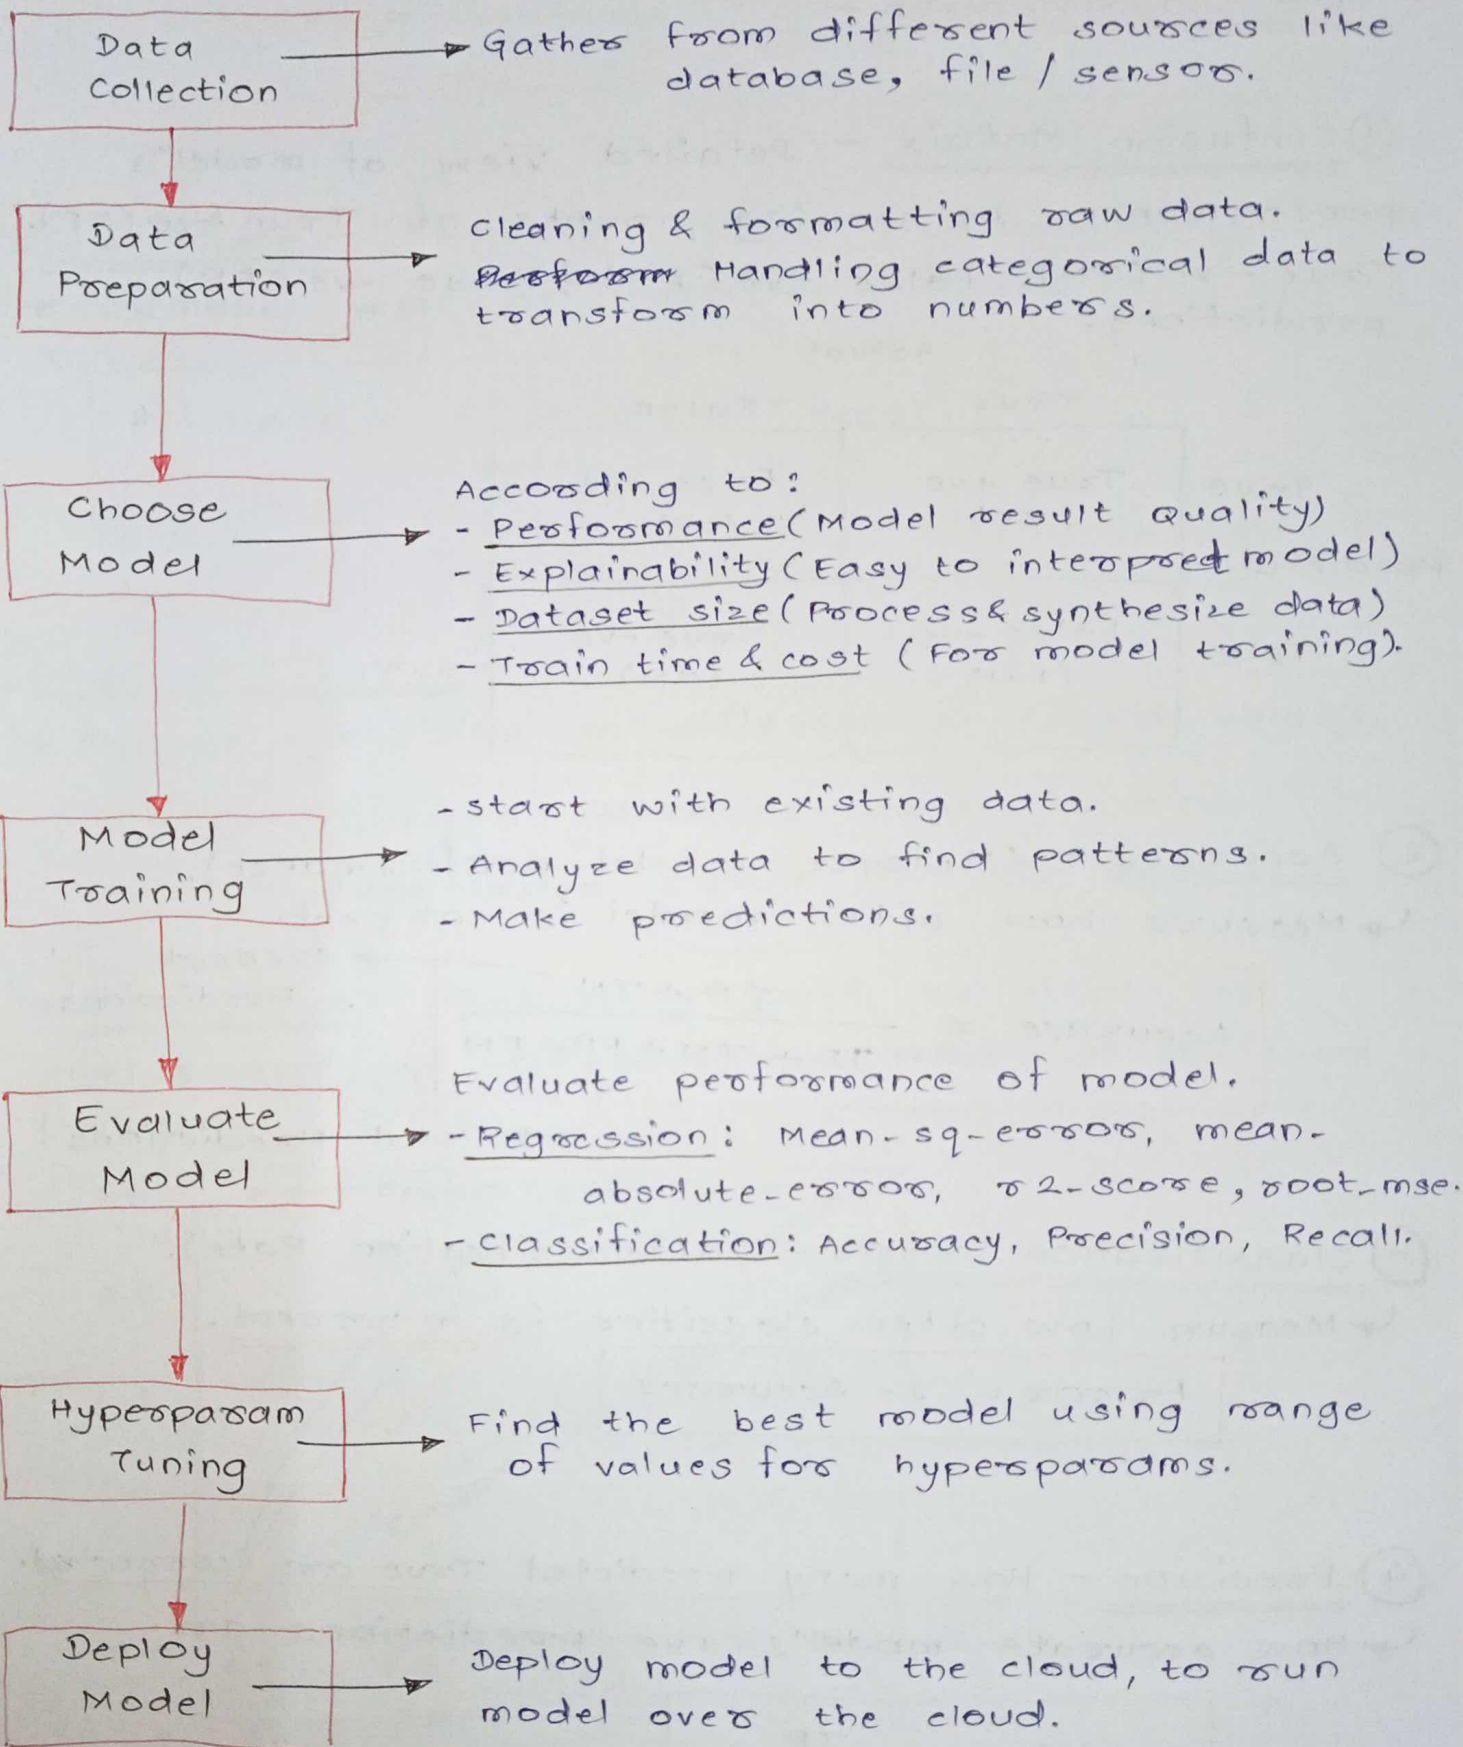 Data
Collection
Gather from different sources like
database, file / sensor.
Data
Preparation
Cleaning & formatting raw data.
Perform Handling categorical data to
transform into numbers.
Choose
Model
According to:
- Performance (Model result Quality)
- Explainability (Easy to interpret model)
- Dataset size (Process & synthesize data)
- Train time & cost (For model training).
Model
Training
- start with existing data.
- Analyze data to find patterns.
- Make predictions.
Evaluate
Model
Evaluate performance of model.
- Regression: Mean-sq-error, mean-
absolute-error, r2-score, root-mse.
- Classification: Accuracy, Precision, Recall.
Hyperparam
Tuning
Find the best model using range
of values for hyperparams.
Deploy
Model
Deploy model to the cloud, to run
model over the cloud.